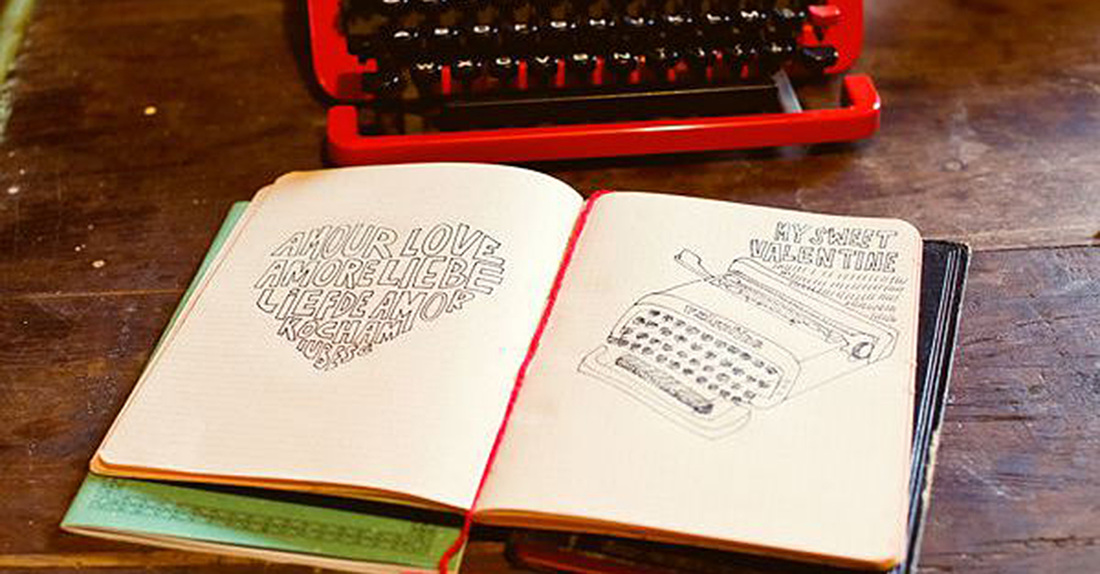 AMOUR LOVE
AMORE LIEBE
LIEFDE AMOR
KOCHAM
MY SWEET
VALENTINE